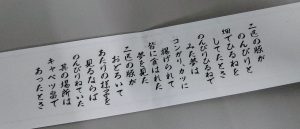 二匹の豚が
のんびりと
畑でひるねを
してたとさ
のんびりひるねで
みた夢は
コンガリ、カツに
揚げられて
皆に食はれた
夢を見た
二匹の豚が
おどろいて
あたりの様子を
見るならば
のんびりひるねの
其の場所は
キャベツ畠で
あつたとさ